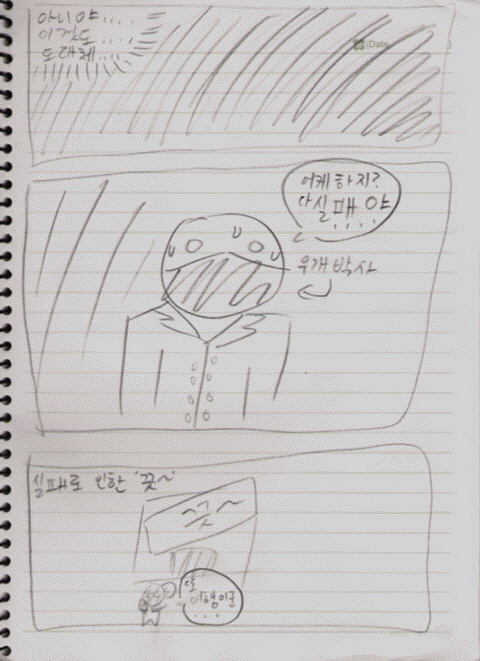 아니야....
이것도...
도대체...
Date
어케하지?
다실패야
....
우개박사
실패로 인한 '끗~'
~끗~
또
이형이군
...